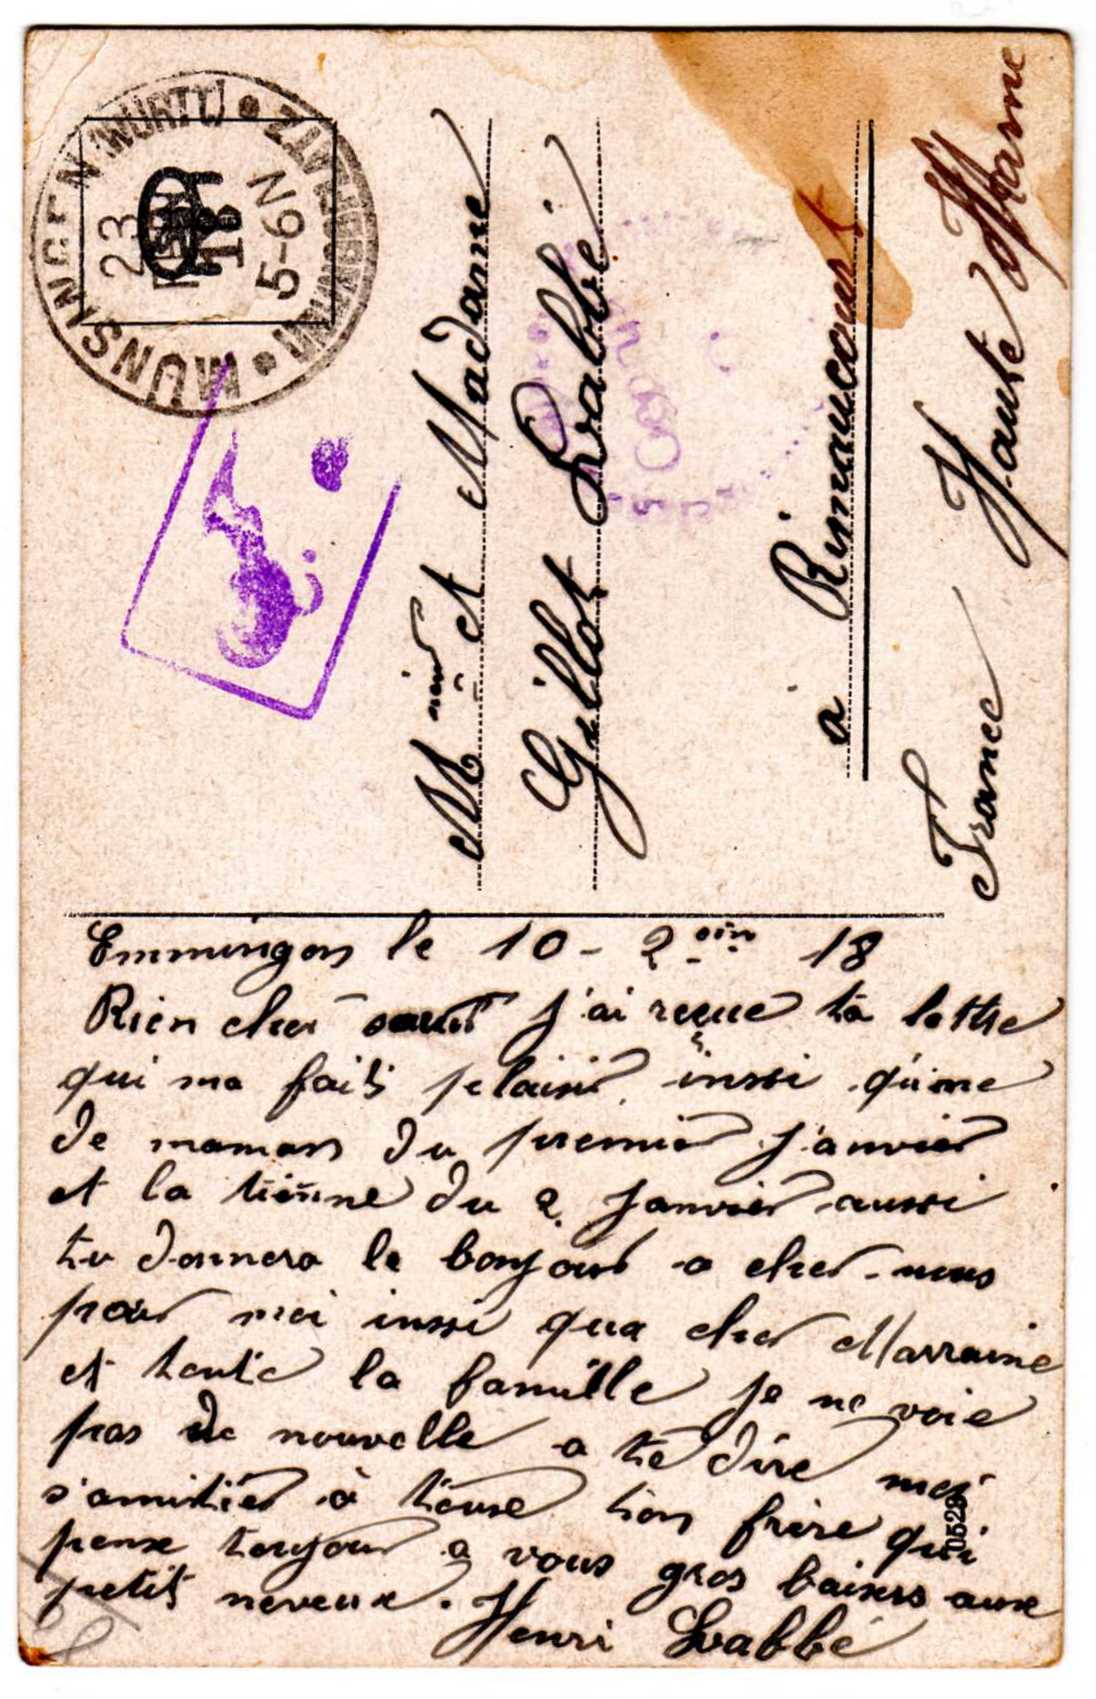 MÜNSINGEN (WÜRTT) * ZWEIGSTELLE *
23
18
5-6N
Msieur et Madame
Gillot Labbé
à Rimaucourt
Haute Marne
France
Emmingen le 10 - 2 18
Bien cher j'ai reçue ta lettre
qui ma fait plaisir inssi qu'une
de maman du premier janvier
et la tiènne du 2 Janvier aussi
tu donnera le bonjour a cher nous
pour moi inssi qua cher Marraine
et toute la famille je ne voie
pas de nouvelle a te dire mes
s'amitier à touse ton frère qui
pense toujour a vous gros baisers aux
petit neveux. Henri Labbé
0528